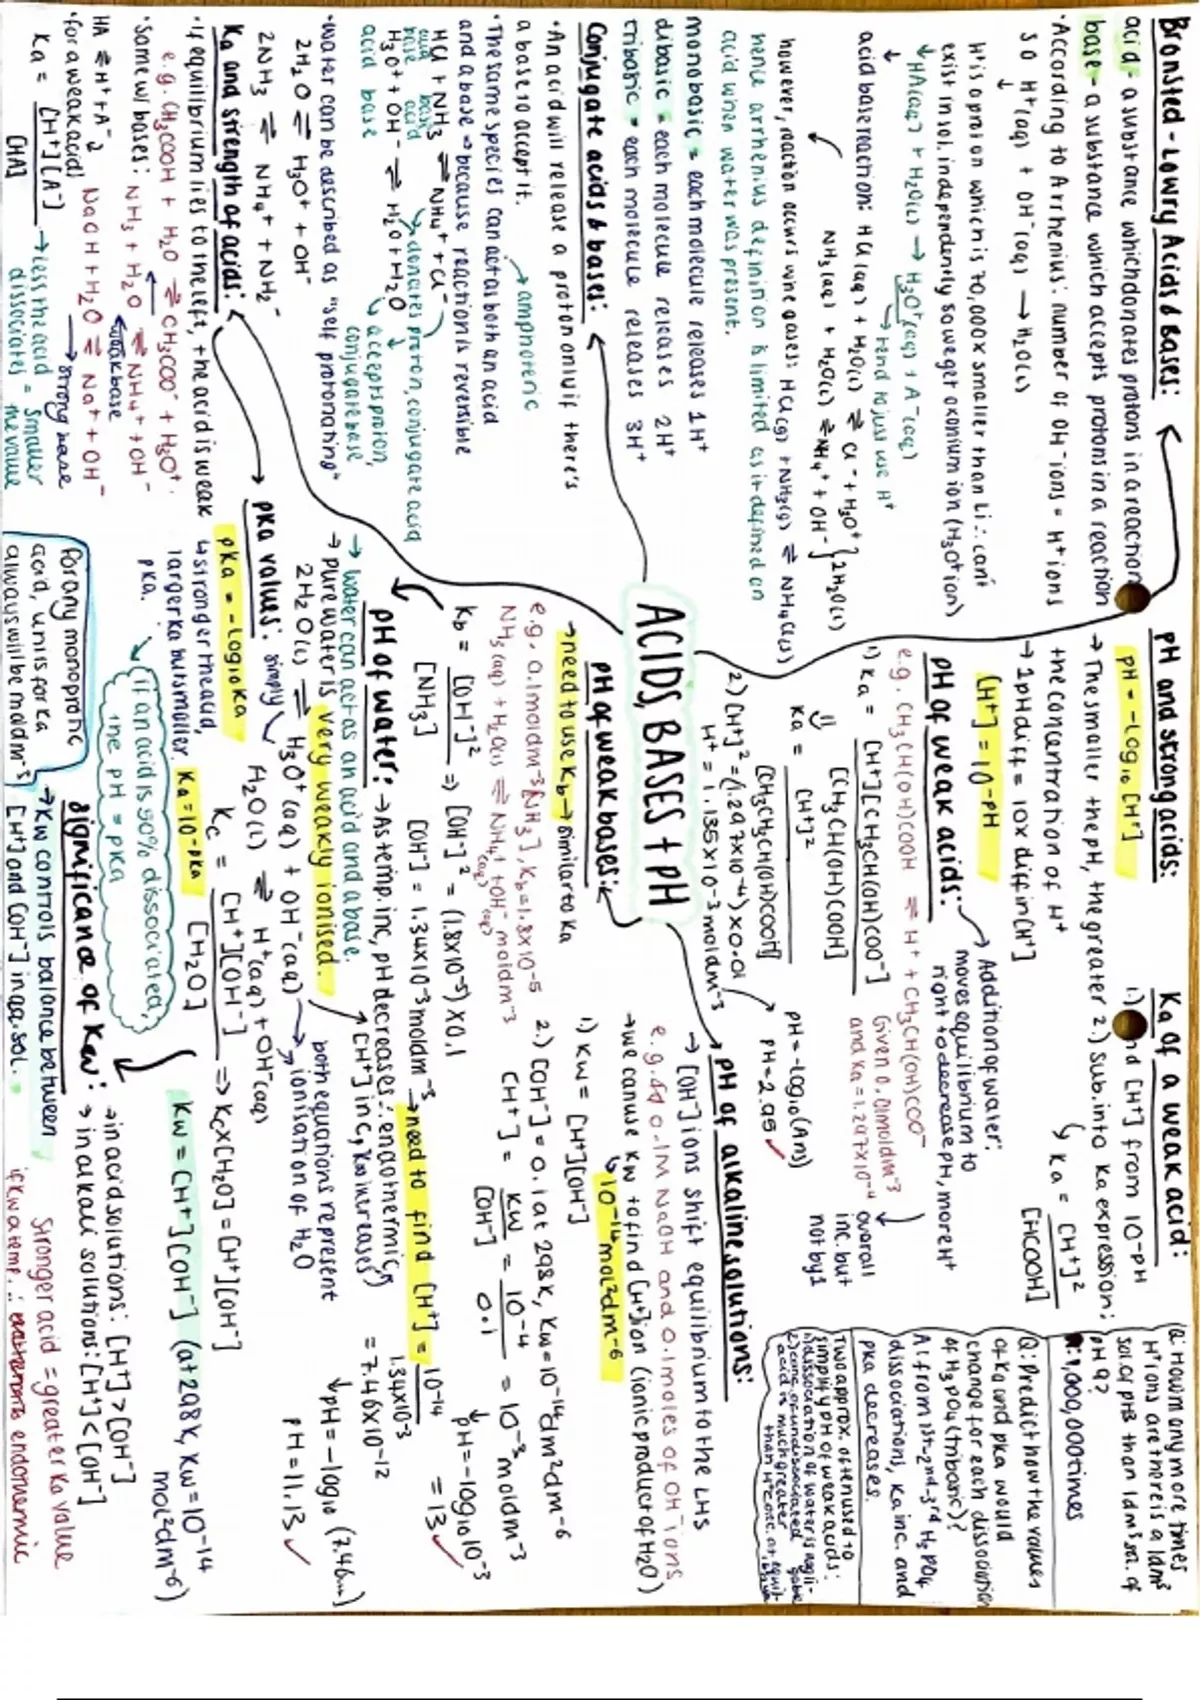 Bronsted-Lowry Acids & Bases:
acid - a substance which donates protons in a reaction
base - a substance which accepts protons in a reaction
·According to Arrhenius: number of OH⁻ ions = H⁺ ions
so H⁺(aq) + OH⁻(aq) → H₂O(l)
H⁺ is a proton which is 70,000x smaller than Li ∴ can't
exist in sol. independently so we get oxonium ion (H₃O⁺ ion)
↓HA(aq) + H₂O(l) → H₃O⁺(aq) + A⁻(aq)
→ tend to just use H⁺
acid base reaction: HCl(aq) + H₂O(l) ⇌ Cl⁻ + H₃O⁺
NH₃(aq) + H₂O(l) ⇌ NH₄⁺ + OH⁻ } 2H₂O(l)
however, reaction occurs w/ne gases: HCl(g) + NH₃(g) ⇌ NH₄Cl(s)
hence arrhenius definition is limited as it defined an
acid when water was present.
monobasic = each molecule releases 1H⁺
dibasic = each molecule releases 2H⁺
tribasic = each molecule releases 3H⁺
Conjugate acids & bases:
·An acid will release a proton only if there's
a base to accept it.
→ amphoteric
·The same species can act as both an acid
and a base → because reaction is reversible
HCl + NH₃ ⇌ NH₄⁺ + Cl⁻
acid base
base acid
→ donates proton, conjugate acid
H₃O⁺ + OH⁻ ⇌ H₂O + H₂O
acid base
↳ accepts proton,
conjugate base
·water can be described as "self protonating"
2H₂O ⇌ H₃O⁺ + OH⁻
2NH₃ ⇌ NH₄⁺ + NH₂⁻
Ka and strength of acids:
·if equilibrium lies to the left, the acid is weak
e.g. CH₃COOH + H₂O ⇌ CH₃COO⁻ + H₃O⁺.
·Same w/ bases: NH₃ + H₂O ⇌ NH₄⁺ + OH⁻
weak base
HA ⇌ H⁺ + A⁻
NaOH + H₂O ⇌ Na⁺ + OH⁻
→ strong base
·for a weak acid
Ka = [H⁺][A⁻]
[HA]
→ less the acid
dissociates = smaller
the value
ACIDS, BASES + pH
pKa values:
simply
pKa = -log₁₀Ka
↳ stronger the acid,
larger Ka but smaller
pKa.
Ka = 10^-pKa
→ if an acid is 50% dissociated,
the pH = pKa
for any monoprotic
acid, units for Ka
always will be moldm⁻³
pH of water:
→ As temp. inc, pH decreases ∴ endothermic
([H⁺] inc, Kw increases)
→ water can act as an acid and a base.
→ pure water is very weakly ionised.
2H₂O(l) ⇌ H₃O⁺(aq) + OH⁻(aq)
H₂O(l) ⇌ H⁺(aq) + OH⁻(aq)
both equations represent
ionisation of H₂O
Kc = [H⁺][OH⁻]
[H₂O]
⇒ Kc x [H₂O] = [H⁺][OH⁻]
Kw = [H⁺][OH⁻] (at 298K, Kw = 10⁻¹⁴
mol²dm⁻⁶)
significance of Kw:
→ Kw controls balance between
[H⁺] and [OH⁻] in aq. sol.
→ in acid solutions: [H⁺] > [OH⁻]
→ in alkali solutions: [H⁺] < [OH⁻]
Stronger acid = greater Ka value
if Kw ∝ temp. ∴ endothermic
pH of weak bases:
→ need to use Kb → similar to Ka
e.g. 0.1moldm⁻³ [NH₃], Kb = 1.8x10⁻⁵
NH₃(aq) + H₂O(l) ⇌ NH₄⁺(aq) + OH⁻(aq) moldm⁻³
Kb = [OH⁻]²
[NH₃]
⇒ [OH⁻]² = (1.8x10⁻⁵) x 0.1
[OH⁻] = 1.34x10⁻³moldm⁻³
→ need to find [H⁺] = 10⁻¹⁴
1.34x10⁻³
= 7.46x10⁻¹²
↓ pH = -log₁₀(7.46...)
pH = 11.13 ✓
pH and strong acids:
pH = -log₁₀[H⁺]
→ The smaller the pH, the greater
the concentration of H⁺
→ 1pH diff = 10x diff in [H⁺]
[H⁺] = 10^-pH
pH of weak acids:
→ Addition of water:
moves equilibrium to
right to decrease pH, more H⁺
overall
inc. but
not by 1
e.g. CH₃CH(OH)COOH ⇌ H⁺ + CH₃CH(OH)COO⁻
Given 0.01moldm⁻³
and Ka = 1.297x10⁻⁴
1) Ka = [H⁺][CH₃CH(OH)COO⁻]
[CH₃CH(OH)COOH]
Ka = [H⁺]²
[CH₃CH₂CH(OH)COOH]
2) [H⁺]² = (1.297x10⁻⁴) x 0.01
H⁺ = 1.135x10⁻³moldm⁻³
pH = -log₁₀(Ans)
pH = 2.95 ✓
pH of alkaline solutions:
→ [OH⁻] ions shift equilibrium to the LHS
e.g. 0.1M NaOH and 0.1moles of OH⁻ ions
→ we can use Kw to find [H⁺] ion (ionic product of H₂O)
↳ 10⁻¹⁴mol²dm⁻⁶
1) Kw = [H⁺][OH⁻]
2) [OH⁻] = 0.1 at 298K, Kw = 10⁻¹⁴dm²dm⁻⁶
[H⁺] = Kw = 10⁻⁴ = 10⁻³moldm⁻³
[OH⁻] 0.1
↓ pH = -log₁₀10⁻³
= 13 ✓
Ka of a weak acid:
1.) nd [H⁺] from 10^-pH
2.) Sub. into Ka expression:
↳ Ka = [H⁺]²
[HCOOH]
Q: How many more times
H⁺ ions are there is a 1dm³
sol. of pH3 than 1dm³ sol. of
pH 9?
1,000,000 times
Q: Predict how the values
of Ka and pKa would
change for each dissociation
of H₃PO₄ (tribasic)?
A: from 1st-2nd-3rd H₃PO₄
dissociations, Ka inc. and
pKa decreases.
Two approx. often used to
simplify pH of weak acids:
1) dissociation of water is negli-
gible
2) conc. of undissociated
acid is much greater
than H⁺ conc. at equil-